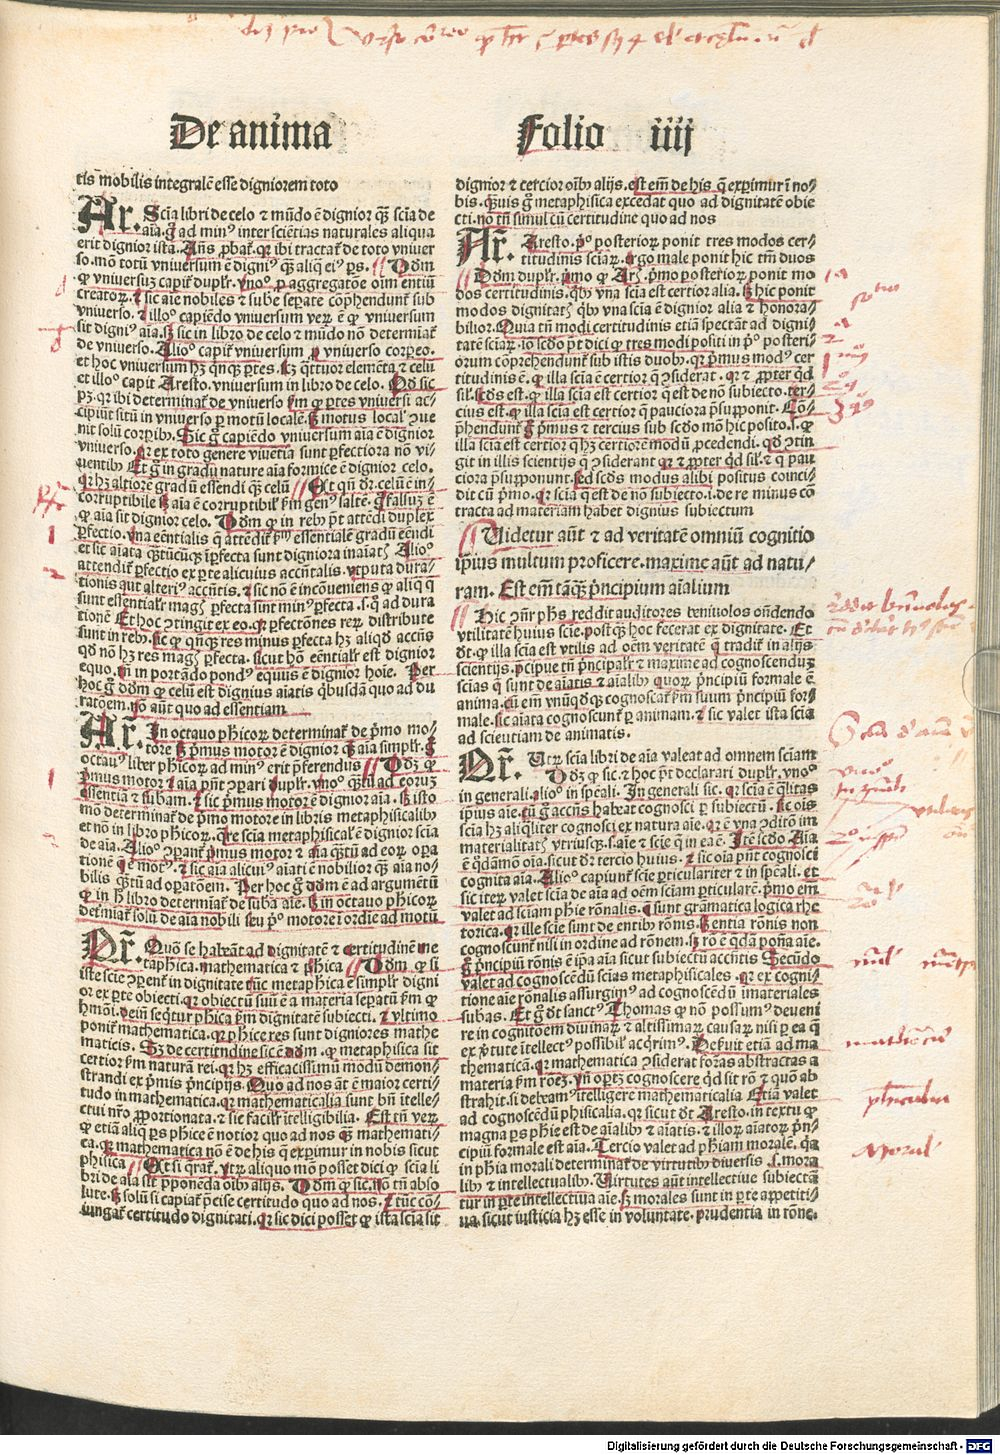 De anima
Folio iiij
tis mobilis integralē esse digniorem toto
Ar. Scīa libri de celo ⁊ mūdo ē dignior q̄ꝫ scīa de
aīa. g̊ ad minꝰ inter sciētias naturales aliqua
erit dignior ista. Añs ꝓbat᷑. qꝛ ibi tractat᷑ de toto vniuer
so. mō totū vniuersum ē digniꝰ q̄ꝫ aliq̄ eiꝰ ps. Dōm
ꝙ vniuersuꝫ capit᷑ duplr̄. vnoº ꝓ aggregatōe oīm entiū
creatoꝝ. ⁊ sic aīe nobiles ⁊ sube seꝑate cōp̄hendunt᷑ sub
vniuerso. ⁊ illoº capiēdo vniuersum veꝝ ē ꝙ vniuersum
sit digniꝰ aīa. sꝫ sic in libro de celo ⁊ mūdo nō determīat᷑
de vniuerso. Alioº capit᷑ vniuersum ꝓ vniuerso corꝑeo.
et hoc vniuersum hꝫ qn̄qꝫ ꝑtes. sꝫ q̄ttuor elemēta ⁊ celū
et illoº capit Aresto. vniuersum in libro de celo. Qd̄ sic
pꝫ. qꝛ ibi determīat᷑ de vniuerso ẜm ꝙ ꝑtes vniuersi ac-
cipiūt sitū in vniuerso ꝑ motū localē. sꝫ motus localꝭ ↄue
nit solū corꝑibꝰ. Sic g̊ capiēdo vniuersum aīa ē dignior
vniuerso. qꝛ ex toto genere viuētia sunt ꝑfectiora nō vi-
uentibꝰ Et g̊ in gradu nature aīa formice ē dignior celo.
qꝛ hꝫ altiorē gradū essendi q̄ꝫ celū Et qn̄ dr̄. celū ē in-
corruptibile sꝫ aīa ē corruptibilꝭ ẜm genꝰ salte. g̊ falsuꝫ ē
ꝙ aīa sit dignior celo. Dōm ꝙ in rebꝰ pt̄ attēdi duplex
ꝑfectio. vna eēntialis q̄ attēdit᷑ ẜm essentialē gradū eēndi
et sic aīata q̄tūcūqꝫ īꝑfecta sunt digniora inaīatꝭ Alioº
attendit᷑ ꝑfectio ex ꝑte alicuius accn̄talis. vtputa dura-
tionis aut alteriꝰ accn̄tis. ⁊ sic nō ē incōueniens ꝙ aliq̄ q̄
sunt essentialr̄ magꝭ ꝑfecta sint minꝰ ꝑfecta. s. q̄ ad dura
tionē Et hoc ↄtingit ex eo. qꝛ ꝑfectōnes reꝝ distribute
sunt in rebꝰ. sic ꝙ qn̄qꝫ res minus ꝑfecta hꝫ aliqd̄ accn̄s
qd̄ nō hꝫ res magꝭ ꝑfecta. sicut hō eēntialr̄ est dignior
equo. tn̄ in portādo pondꝰ equus ē dignior hoīe. Per
hoc g̊ dōm ꝙ celū est dignius aīatis q̄busdā quo ad du
ratoem. nō aūt quo ad essentiam
Ar. In octauo phicoꝝ determīat᷑ de pͥmo mo-
tore sꝫ pͥmus motor ē dignior q̄ꝫ aīa simplr̄. g̊
octauꝰ liber phicoꝝ ad minꝰ erit p̄ferendus Dōꝫ ꝙ
pͥmus motor ⁊ aīa pn̄t ↄpari duplr̄. vnoº. q̄tū ad eoruꝫ
essentia ⁊ subam. ⁊ sic pͥmus motor ē dignior aīa. sꝫ isto
mō determīat᷑ de pͥmo motore in libris metaphicalibꝰ
et nō in libro phicoꝝ. qre scīa metaphicalꝭ ē dignior scīa
de aīa. Alioº ↄpant᷑ pͥmus motor ⁊ aīa q̄tū ad eoꝝ opa
tionē q̄ ē motꝰ. ⁊ sic aīa alicuiꝰ aīati ē nobilior q̄ꝫ aīa no-
bilis q̄tū ad oꝑatōem. Per hoc g̊ dōm ē ad argumētū
ꝙ in h̊ libro determīat᷑ de suba aīe. sꝫ in octauo phicoꝝ
determīat᷑ solū de aīa nobili seu pͥmo motore ī ordīe ad motū
Qr̄. Quō se habeāt ad dignitatē ⁊ certitudinē me
taphica. mathematica ⁊ phica Dōm ꝙ si
iste scīe ↄperent᷑ in dignitate tūc metaphica ē simplr̄ digni
or ex ꝑte obiecti. qꝛ obiectū suū ē a materia seperatū ẜm ꝙ
hmōi. deīn seq̄tur phica ẜm dignitatē subiecti. ⁊ vltimo
ponit᷑ mathematica. qꝛ phice res sunt digniores mathe
maticis. Sꝫ de certitudine sic ē dōm. ꝙ metaphica sit
certior ẜm naturā rei. qꝛ hꝫ efficacissimū modū demon-
strandi ex pͥmis pͥncipijs. Quo ad nos aūt ē maior certi-
tudo in mathematica. qꝛ mathematicalia sunt bn̄ ītelle-
ctui nr̄o ꝓportionata. ⁊ sic facilr̄ ītelligibilia. Est tn̄ veꝝ
ꝙ etiā aliq̄ ps phice ē notior quo ad nos q̄ꝫ mathemati-
ca. qꝛ mathematica nō ē de his q̄ expͥmur in nobis sicut
phisica Et si q̄rat᷑. vtꝝ aliquo mō posset dici ꝙ scīa li
bri de aīa sit p̄ponēda oībꝰ alijs. Dōm ꝙ sic. nō tn̄ abso
lute. sꝫ solū si capiat᷑ p̄cise certitudo quo ad nos. ⁊ tūc cō-
iungat᷑ certitudo dignitati. qꝛ sic dici posset ꝙ ista scīa sit
dignior ⁊ cercior oībꝰ alijs. est em̄ de his q̄ expͥmur ī no-
bis. q̄uis g̊ metaphisica excedat quo ad dignitatē obie
cti. nō tn̄ simul cū certitudine quo ad nos
Ar. Aresto. pͥº posterioꝝ ponit tres modos cer-
titudinis sciaꝝ. ergo male ponit hic tm̄ duos
Dōm duplr̄. pͥmo ꝙ Ar. pͥmo posterioꝝ ponit mo
dos certitudinis. qbꝰ vna scīa est certior alia. sꝫ hic ponit
modos dignitatꝭ qbꝰ vna scīa ē dignior alia ⁊ honora-
bilior. Quia tn̄ modi certitudinis etiā spectāt ad digni-
tatē sciaꝝ. iō scd̄o pt̄ dici ꝙ tres modi positi in pͥº posteri-
orum cōprehendunt᷑ sub istis duobꝰ. qꝛ pͥmus modꝰ cer
titudinis ē. ꝙ illa scīa ē certior q̄ ↄsiderat. qꝛ ⁊ ꝓpter qd̄
sil᷑. scd̄s est. ꝙ illa scīa est certior q̄ est de nō subiecto. ter-
cius est. ꝙ illa scīa est certior q̄ pauciora p̄supponit. Cō-
p̄hendunt᷑ g̊ pͥmus ⁊ tercius sub scd̄o mō hic posito. s. ꝙ
illa scīa est certior q̄ hꝫ certiorē modū ꝓcedendi. qd̄ ↄtin
git in illis scientijs q̄ ↄsiderant qꝛ ⁊ ꝓpter qd̄ sil᷑. ⁊ q̄ pau
ciora p̄supponūt. sed scd̄s modus alibi positus coinci-
dit cū pͥmo. qꝛ scīa q̄ est de nō subiecto. i. de re minus cō
tracta ad materiam habet dignius subiectum
Uidetur aūt ⁊ ad veritatē omniū cognitio
ipius multum proficere. maxime aūt ad natu-
ram. Est em̄ tāq̄ꝫ pͥncipium aīalium
Hic ↄn̄r phs reddit auditores beniuolos on̄dendo
vtilitatē huius scīe. postq̄ꝫ hoc fecerat ex dignitate. Et
dt̄. ꝙ illa scīa est vtilis ad oēm veritatē q̄ tradit᷑ in alijs
scientijs. pͥcipue tn̄ pͥncipalr̄ ⁊ maxime ad cognoscenduꝫ
scīas q̄ sunt de aīatis ⁊ aīalibꝰ quoꝝ pͥncipiū formale ē
anima. cū em̄ vnūqd̄qꝫ cognoscat᷑ ẜm suum pͥncipiū for-
male. sic aīata cognoscunt᷑ ꝑ animam. ⁊ sic valet ista scīa
ad scientiam de animatis.
Qr̄. Utꝝ scīa libri de aīa valeat ad omnem scīam
Dōꝫ ꝙ sic. ⁊ hoc pt̄ declarari duplr̄. vnoº
in generali. alioº in spēali. In generali sic. qꝛ scīa ē q̄litas
ipius aīe. cū g̊ accn̄s habeat cognosci ꝑ subiectū. sic oīs
scīa hꝫ aliqͣliter cognosci ex natura aīe. qꝛ ē vna ↄditō im
materialitatꝭ vtriusqꝫ. s. aīe ⁊ scīe q̄ in ea ē. Itē scd̄o. Aīa
ē q̄dāmō oīa. sicut dr̄ tercio huius. ⁊ sic oīa pn̄t cognosci
cognita aīa. Alioº capiunt᷑ scīe ꝑticulariter ⁊ in spēali. et
sic iteꝝ valet scīa de aīa ad oēm sciam ꝑticularē. pͥmo em̄
valet ad sciam phīe rōnalis. q̄ sunt grāmatica logica rhe
torica. qꝛ ille scīe sunt de entibꝰ rōnis. sꝫ entia rōnis non
cognoscunt᷑ nisi in ordine ad rōnem. sꝫ rō ē q̄dā potn̄a aīe.
g̊ pͥncipiū rōnis ē ip̄a aīa sicut subiectū accn̄tis Secūdo
valet ad cognoscēdū scīas metaphisicales. qꝛ ex cogni-
tione aīe rōnalis assurgimꝰ ad cognoscēdū īmateriales
subas. Et g̊ dt̄ sanctꝰ Thomas ꝙ nō possumꝰ deueni
re in cognitoem diuinaꝝ ⁊ altissimaꝝ causaꝝ nisi ꝑ ea q̄
ex ꝟtute ītellectꝰ possibilꝭ acqͥrimꝰ. Deseruit etiā ad ma
thematicā. qꝛ mathematica ↄsiderat formas abstractas a
materia ẜm rōeꝫ. vn̄ oportꝫ cognoscere qd̄ sit rō ⁊ quō ab
strahit. si debeamꝰ ītelligere mathematicalia Etiā valet
ad cognoscēdū phisicalia. qꝛ sicut dt̄ Aresto. in textu ꝙ
magna ps phīe est de aīalibꝰ ⁊ aīatis. ⁊ illoꝝ aīatoꝝ pͥn-
cipiū formale est aīa. Tercio valet ad phīam morale. qꝛ
in phīa morali determīat᷑ de virtutibꝰ diuersis s. mora
libꝰ ⁊ intellectualibꝰ. Uirtutes aūt intellectiue subiectā
tur in ꝑte intellectiua aīe. sꝫ morales sunt in ꝑte appetiti-
ua. sicut iusticia hꝫ esse in voluntate. prudentia in rōne.
Digitalisierung gefördert durch die Deutsche Forschungsgemeinschaft - DFG